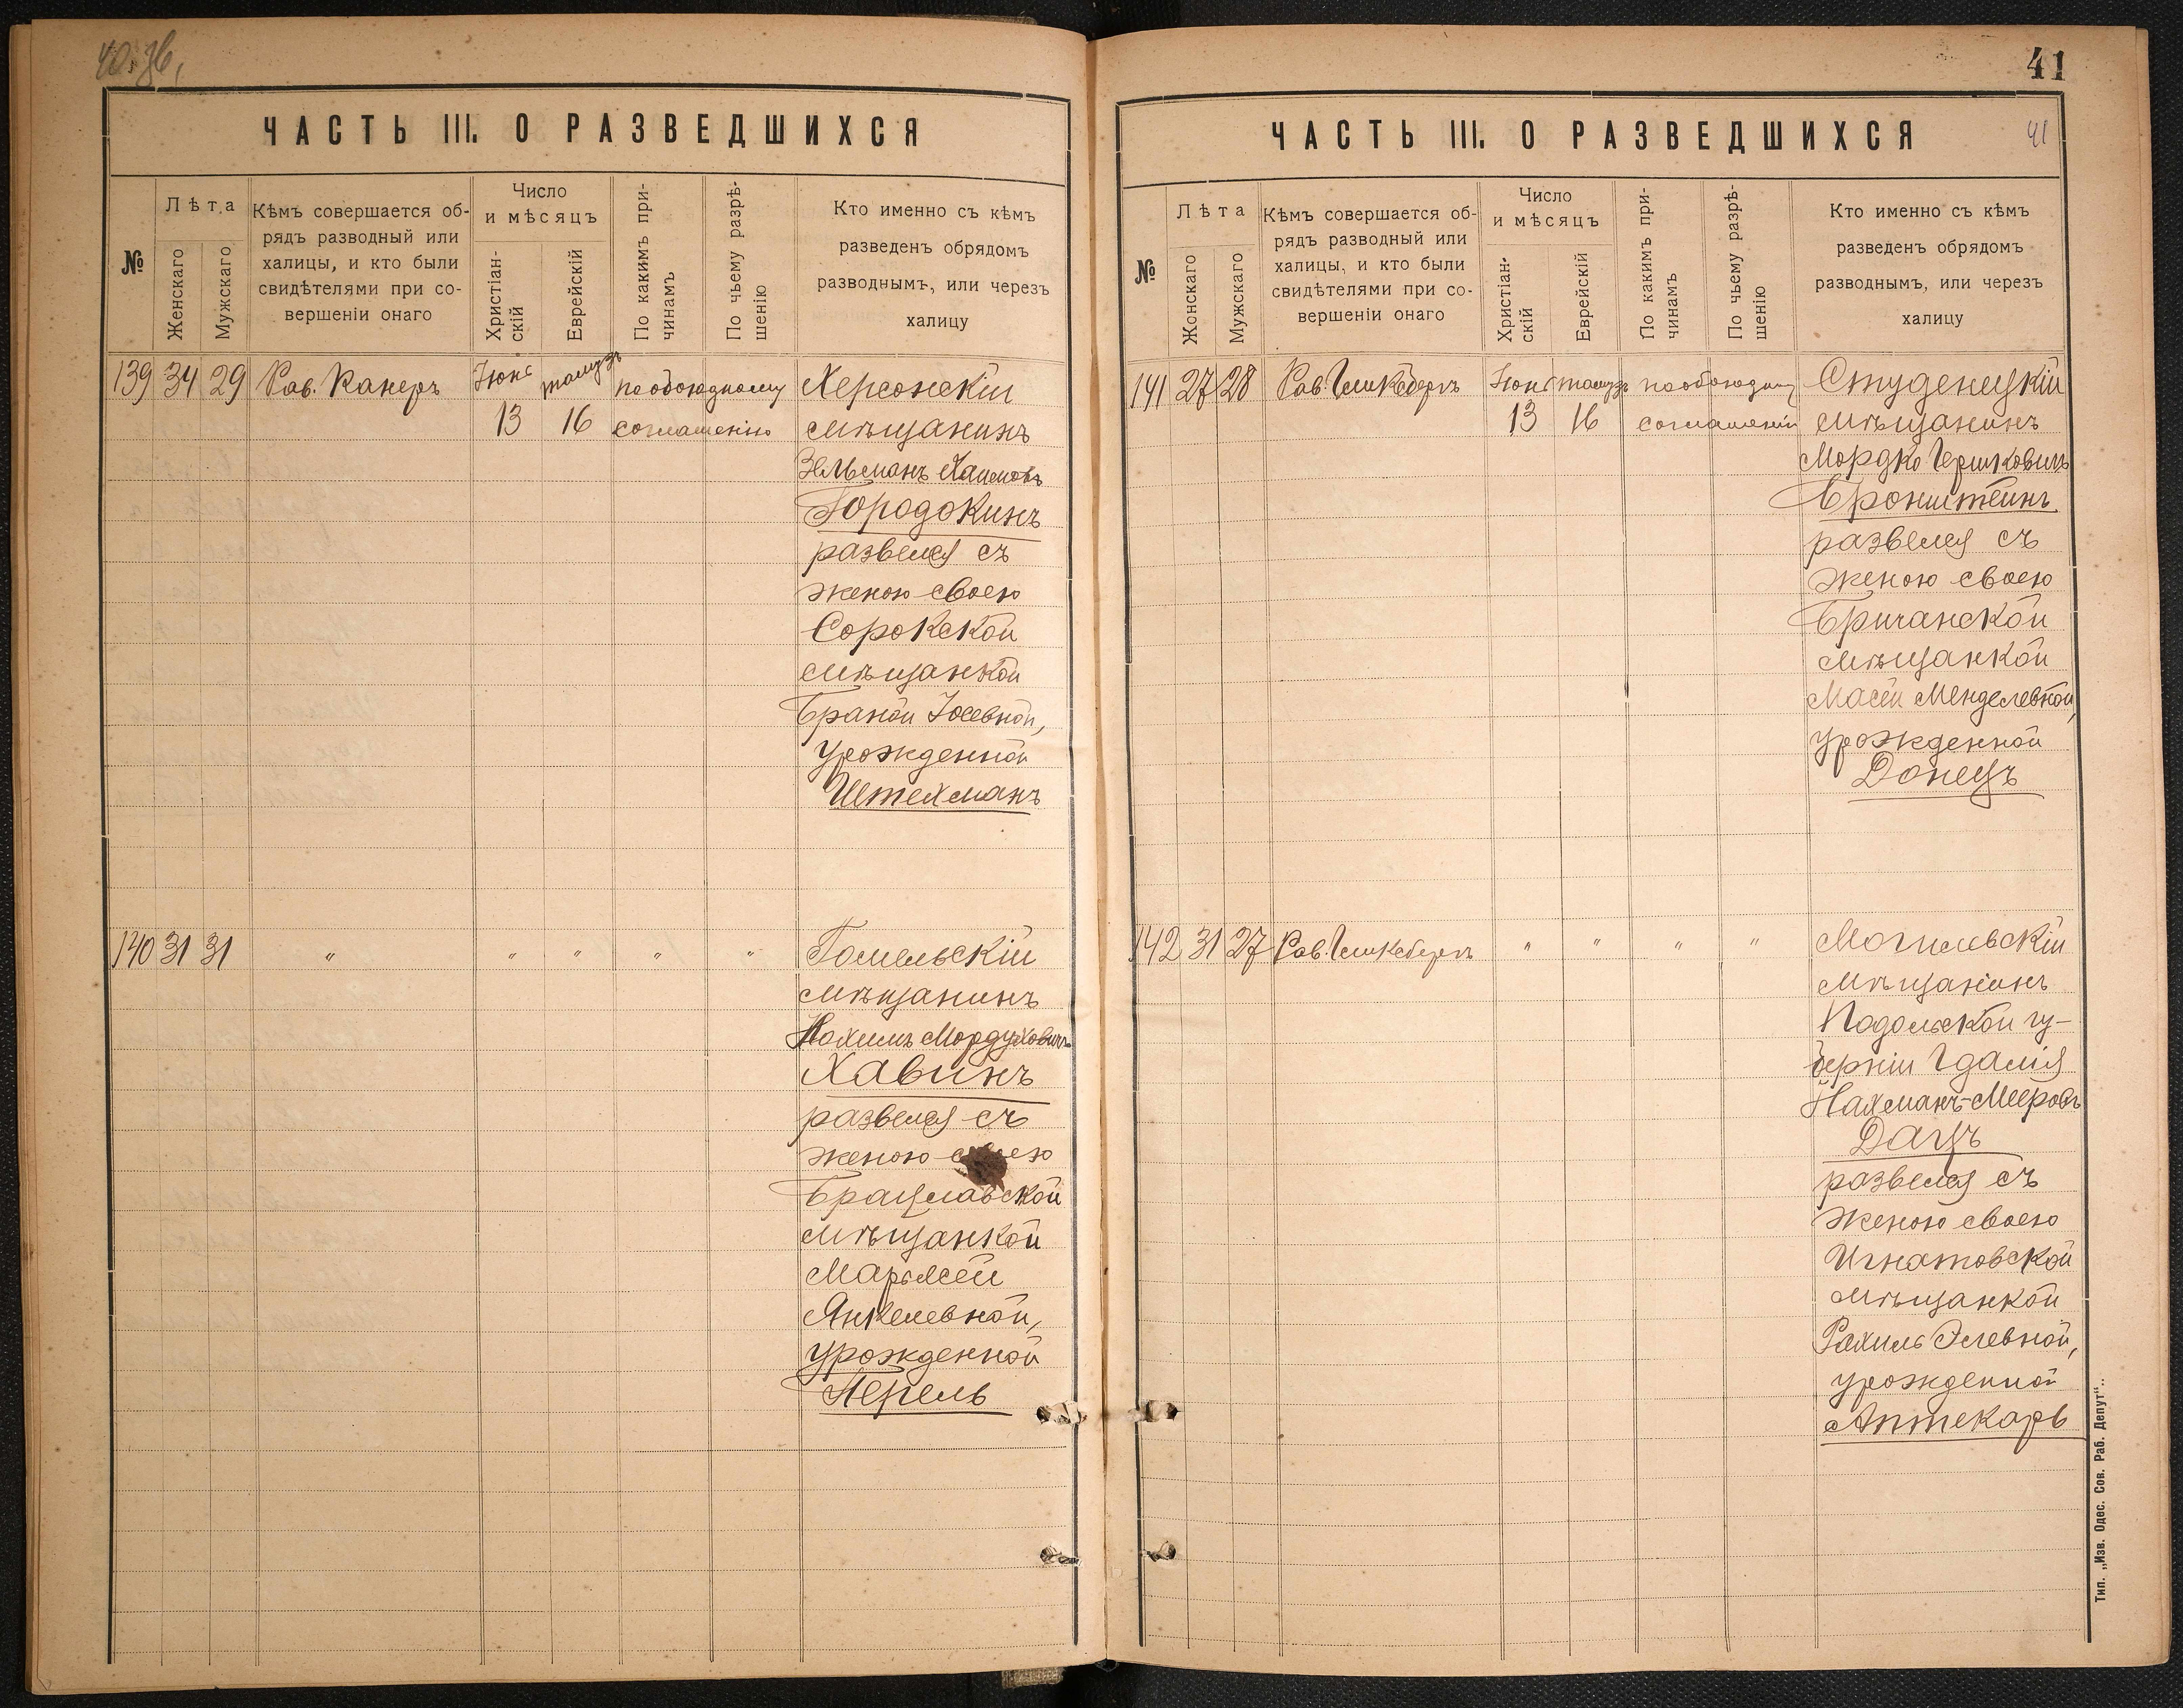 40 зв,
ЧАСТЬ III. О РАЗВЕДШИХСЯ
№
Лѣта
Женскаго
Мужскаго
Кѣмъ совершается об-
рядъ разводный или
халицы, и кто были
свидѣтелями при со-
вершеніи онаго
Число
и мѣсяцъ
Христіан-
скій
Еврейскій
По какимъ при-
чинамъ
По чьему разрѣ-
шенію
Кто именно съ кѣмъ
разведенъ обрядомъ
разводнымъ, или черезъ
халицу
139 34 29 Рав. Канеръ Іюнь тамузъ по обоюдному Херсонскій
13 16 согласенію мѣщанинъ
Зельманъ Хаимовъ
Городокинъ
развелся съ
женою своею
Сорокской
мѣщанкой
Браной Іосевной,
урожденной
Штехманъ
140 31 31 " " " " " Гомельскій
мѣщанинъ
Нохимъ Мордуховичъ
Хавинъ
развелся съ
женою своею
Брацлавской
мѣщанкой
Марьясей
Янкелевной,
урожденной
Перель
41
ЧАСТЬ III. О РАЗВЕДШИХСЯ
41
№
Лѣта
Жонскаго
Мужскаго
Кѣмъ совершается об-
рядъ разводный или
халицы, и кто были
свидѣтелями при со-
вершеніи онаго
Число
и мѣсяцъ
Христіан-
скій
Еврейскій
По какимъ при-
чинамъ
По чьему разрѣ-
шенію
Кто именно съ кѣмъ
разведенъ обрядомъ
разводнымъ, или черезъ
халицу
141 27 28 Рав. Гликсбергъ Іюнь тамузъ по обоюдному Студенецкій
13 16 согласенію мѣщанинъ
Мордко Гершковичъ
Бронштейнъ
развелся съ
женою своею
Бричанской
мѣщанкой
Масей Менделевной,
урожденной
Донецъ
142 31 27 Рав. Гликсбергъ " " " " Могилевскій
мѣщанинъ
Подольской гу-
берніи Гдалія
Нахманъ-Мееровъ
Дацъ
развелся съ
женою своею
Игнатовской
мѣщанкой
Рахиль Элевной,
урожденной
Аптекарь
Тип. „Изв. Одес. Сов. Раб. Депут“..